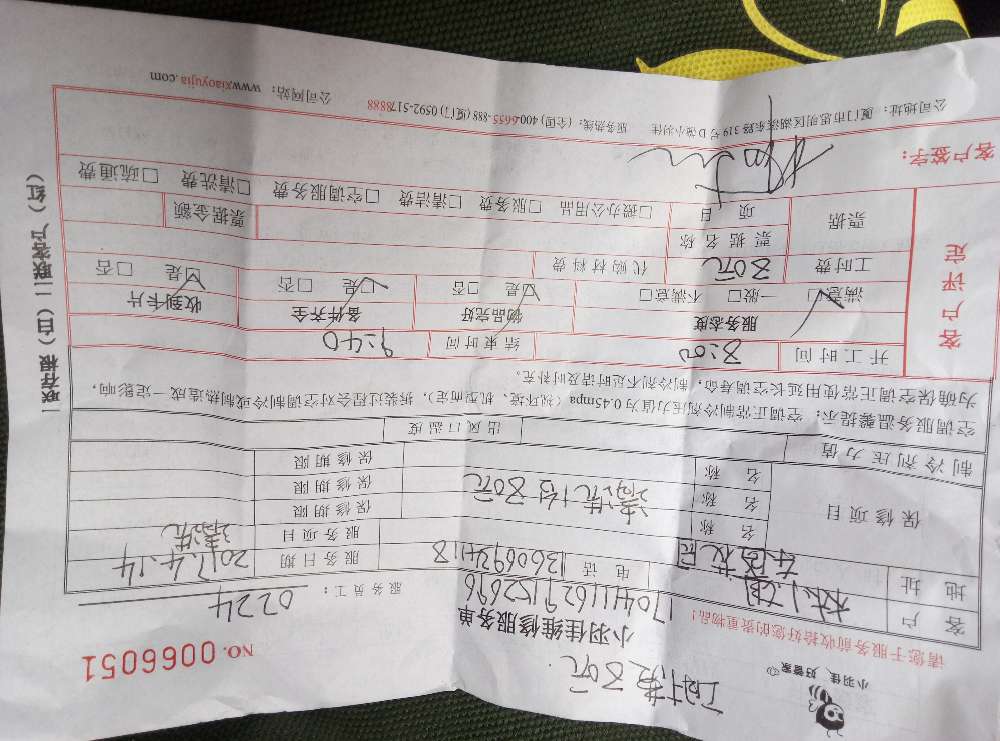 小羽佳，好管家
工时费80元
请您于服务前收拾好您的贵重物品！
小羽佳维修服务单
NO. 0066051
服务员工： 0224
客户 170411629152696
地址
电话 13606934118
服务日期 2017.4.14
服务项目 清洗
保修项目
名称 保修期限
名称 清洗1台80元 保修期限
名称 保修期限
制冷剂压力值 出风口温度
空调服务温馨提示：空调正常制冷剂压力值为0.45mpa（视环境、机型而定），拆装过程会对空调制冷或制热造成一定影响，
为确保空调正常使用延长空调寿命，制冷剂不足时请及时补充。
客户评定
开工时间 8:00 结束时间 9:40
服务态度 物品完好 备件齐全 收到卡片
满意□ 一般□ 不满意□ 是□ 否□ 是□ 否□ 是□ 否□
工时费 80元 代购材料费
票据 票据名称 票据金额
项目 □办公用品 □服务费 □清洁费 □空调服务费 □清洗费 □疏通费
客户签字：
公司地址：厦门市思明区湖滨东路319号D 小羽佳 服务热线：（全国）400-6655-888（厦门）0592-5178888 公司网站：www.xiaoyujia.com
一联存根（白）二联客户（红）